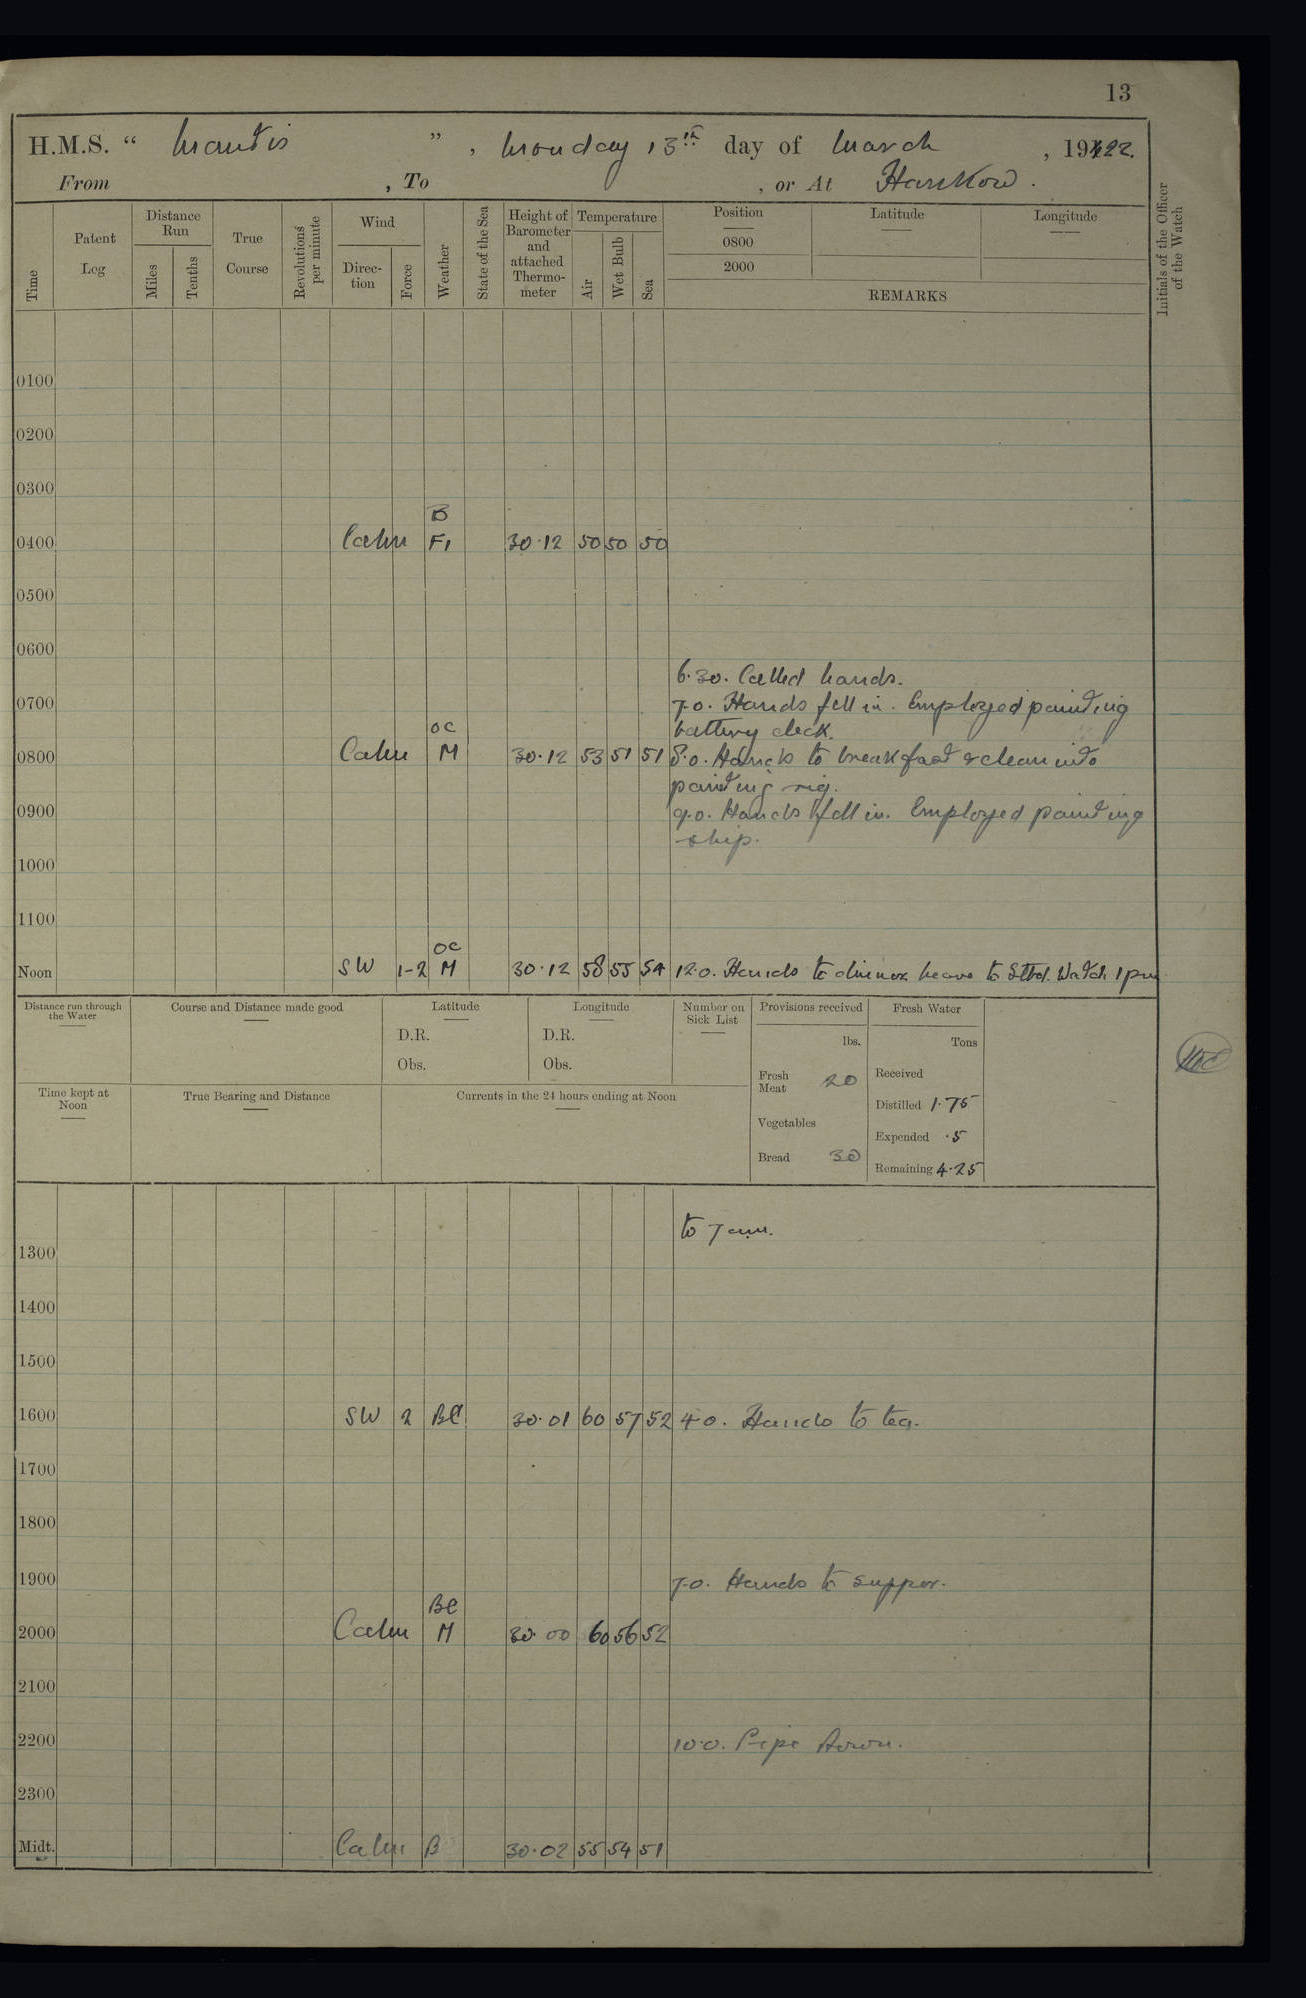 13
H.M.S. “ Mantis ” , Monday 13th day of March , 1922.
From , To , or At Hankow .
Time
Patent Log
Distance Run
Miles
Tenths
True Course
Revolutions per minute
Wind
Direction
Force
Weather
State of the Sea
Height of Barometer and attached Thermometer
Temperature
Air
Wet Bulb
Sea
Position
0800
2000
Latitude
Longitude
REMARKS
Initials of the Officer of the Watch
0100
0200
0300
B
0400 Calm F1 30.12 50 50 50
0500
0600
6.30. Called hands.
0700 7.0. Hands fell in. Employed painting
oc battery deck.
0800 Calm M 30.12 53 51 51 8.0. Hands to breakfast & clean into
painting rig.
0900 9.0. Hands fell in. Employed painting
ship.
1000
1100
oc
Noon SW 1-2 M 30.12 58 55 54 12.0. Hands to dinner leave to Stbd. Watch 1 pm
Distance run through the Water
Course and Distance made good
Latitude
D.R.
Obs.
Longitude
D.R.
Obs.
Number on Sick List
Provisions received
lbs.
Fresh Meat 20
Vegetables
Bread 30
Fresh Water
Tons
Received
Distilled 1.75
Expended .5
Remaining 4.25
Time kept at Noon
True Bearing and Distance
Currents in the 24 hours ending at Noon
to 7 am.
1300
1400
1500
1600 SW 2 BC 30.01 60 57 52 4.0. Hands to tea.
1700
1800
1900 7.0. Hands to supper.
BC
2000 Calm M 30.00 60 56 52
2100
2200 10.0. Pipe down.
2300
Midt. Calm B 30.02 55 54 51